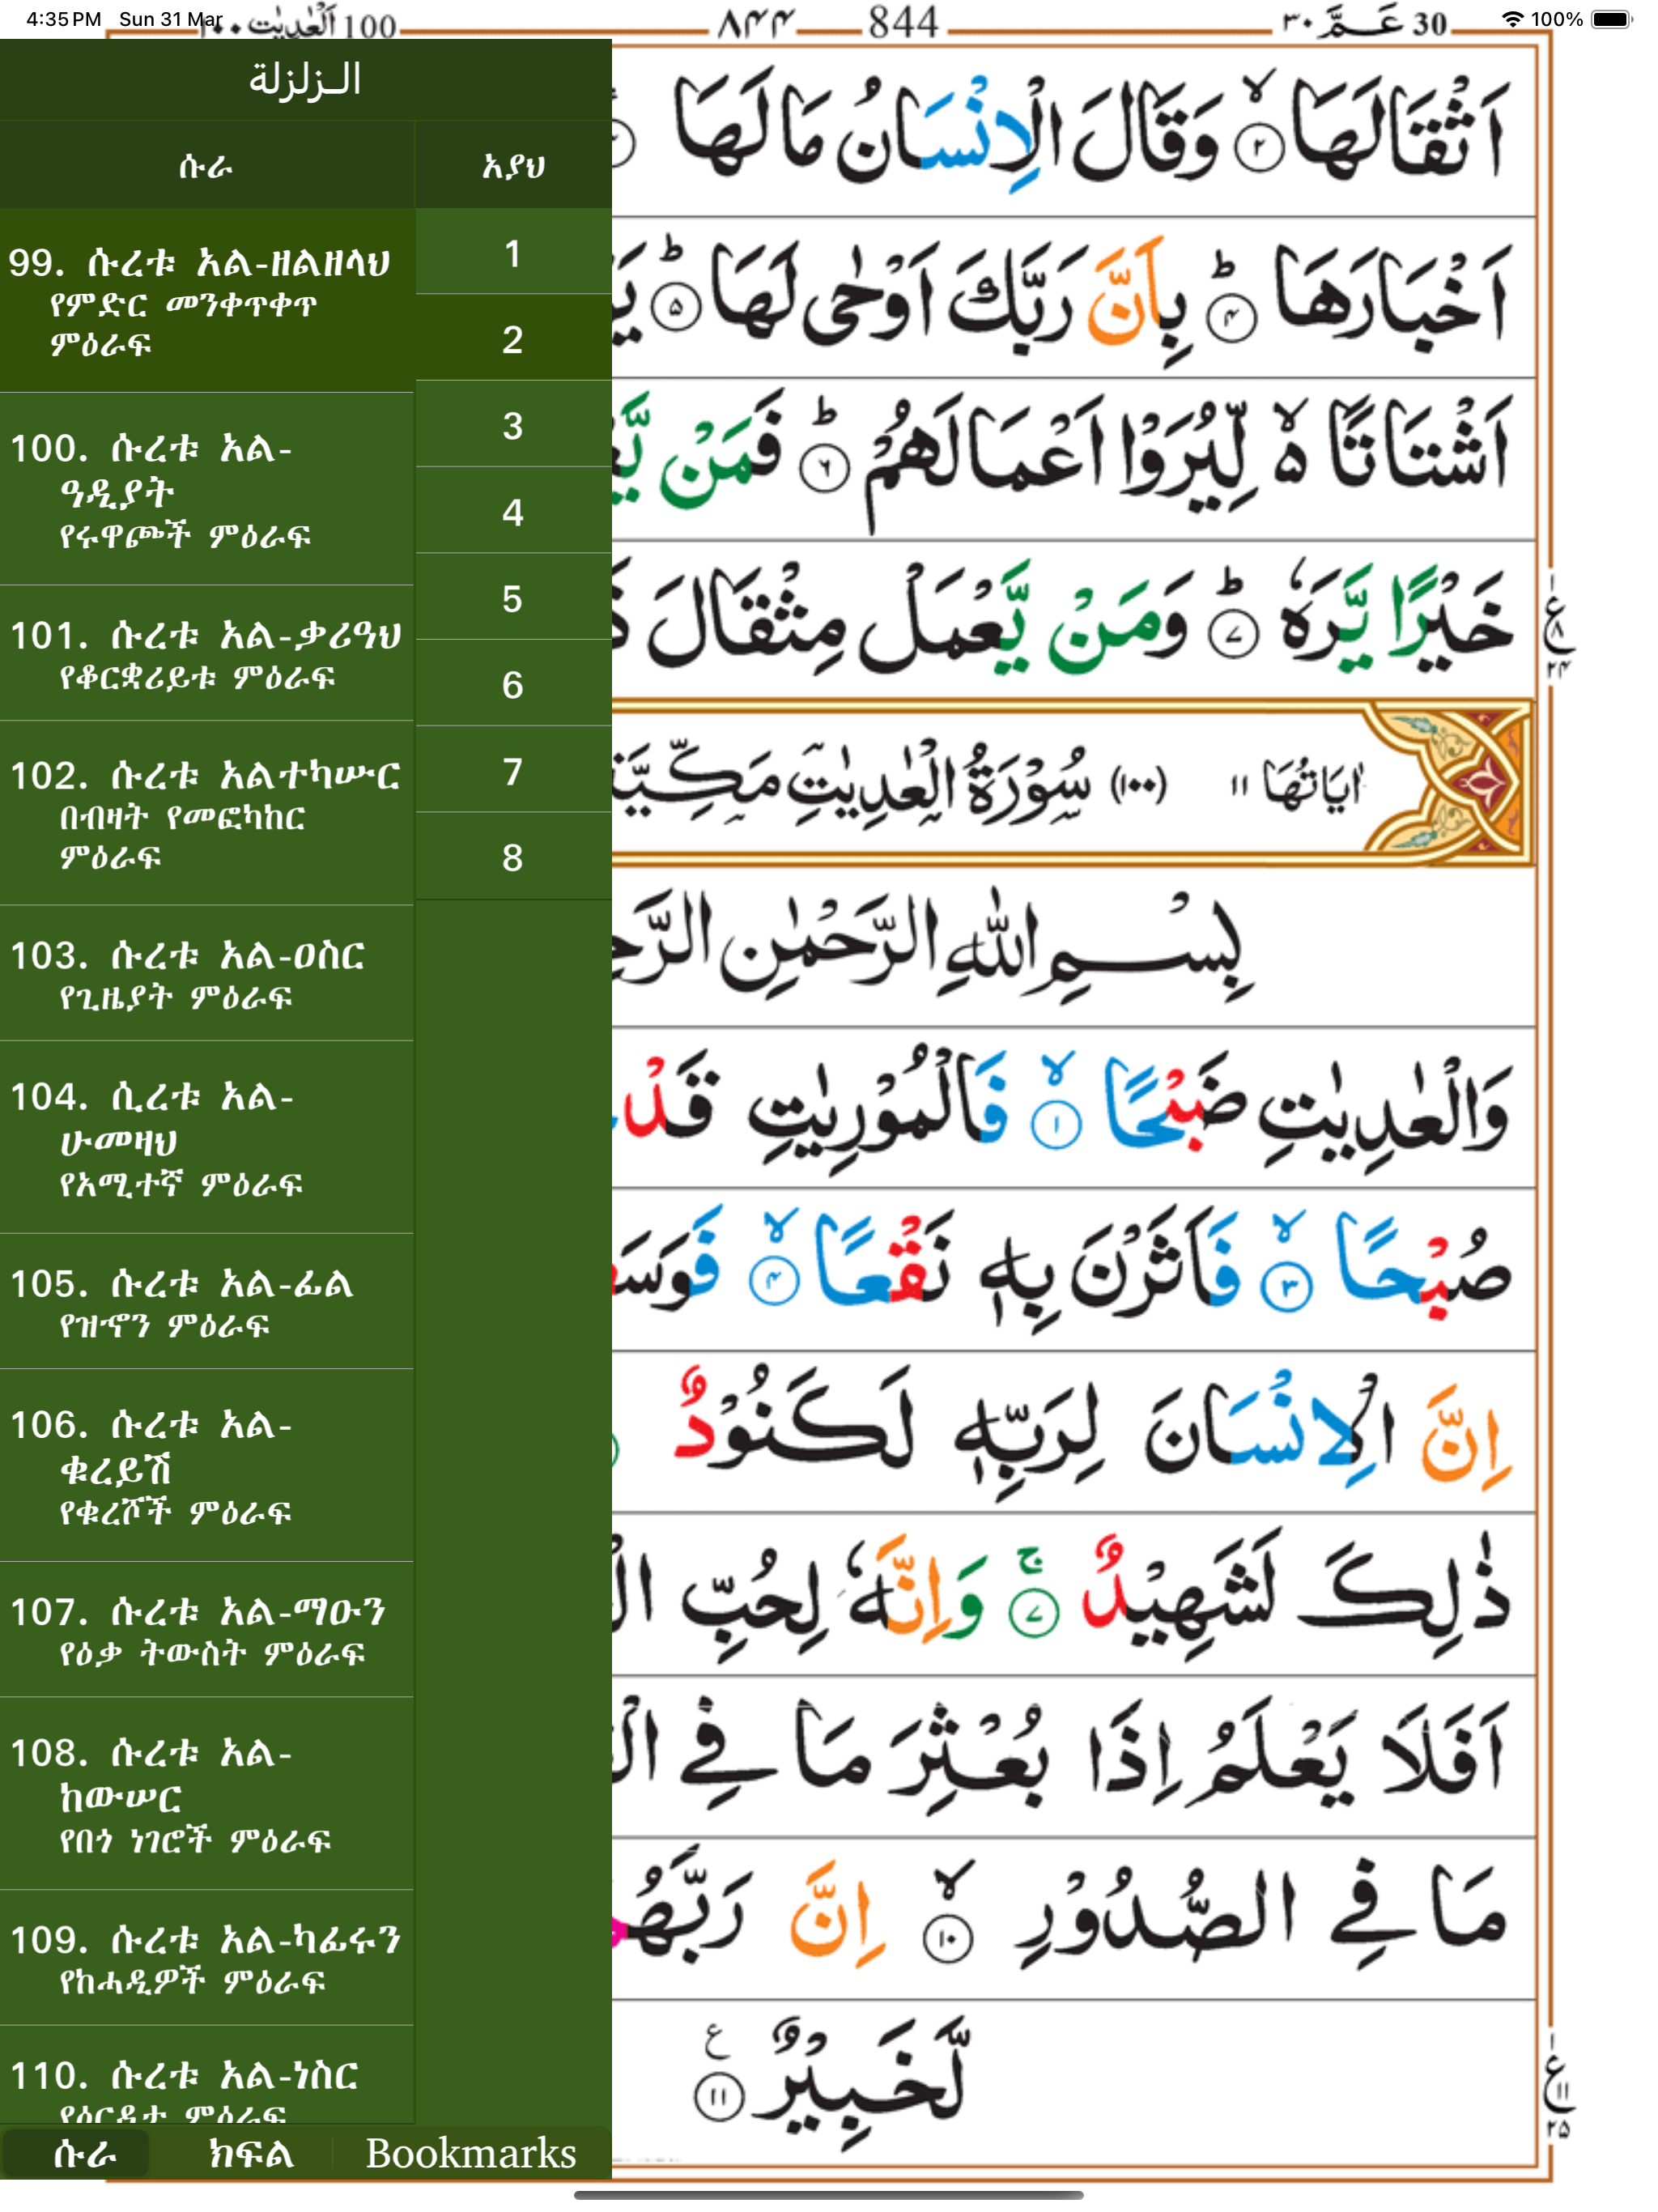 4:35 PM Sun 31 Mar
100%
100 اَلْعٰدِيٰت ١٠٠
٨۴۴ 844
عَـمَّ ٣٠ 30
الـزلزلة
ሱራ
አያህ
99. ሱረቱ አል-ዘልዘላህ
የምድር መንቀጥቀጥ
ምዕራፍ
100. ሱረቱ አል-
ዓዲያት
የሩዋጮች ምዕራፍ
101. ሱረቱ አል-ቃሪዓህ
የቆርቋሪይቱ ምዕራፍ
102. ሱረቱ አልተካሡር
በብዛት የመፎካከር
ምዕራፍ
103. ሱረቱ አል-ዐስር
የጊዜያት ምዕራፍ
104. ሲረቱ አል-
ሁመዛህ
የአሚተኛ ምዕራፍ
105. ሱረቱ አል-ፊል
የዝሆን ምዕራፍ
106. ሱረቱ አል-
ቁረይሽ
የቁረሾች ምዕራፍ
107. ሱረቱ አል-ማዑን
የዕቃ ትውስት ምዕራፍ
108. ሱረቱ አል-
ከውሠር
የበጎ ነገሮች ምዕራፍ
109. ሱረቱ አል-ካፊሩን
የከሓዲዎች ምዕራፍ
110. ሱረቱ አል-ነስር
የዕርዳታ ምዕራፍ
1
2
3
4
5
6
7
8
ሱራ
ክፍል
Bookmarks
اَثْقَالَهَا ۙ ٢ وَقَالَ الْاِنْسَانُ مَا لَهَا
اَخْبَارَهَا ؕ ۴ بِاَنَّ رَبَّكَ اَوْحٰى لَهَا ؕ ۵
اَشْتَاتًا ۙ۬ لِّيُرَوْا اَعْمَالَهُمْ ؕ ٦ فَمَنْ
خَيْرًا يَّرَهٗ ؕ ٧ وَمَنْ يَّعْمَلْ مِثْقَالَ
اٰيَاتُهَا ١١ (١٠٠) سُوْرَةُ الْعٰدِيٰتِ
بِسْمِ اللّٰهِ الرَّحْمٰنِ
وَالْعٰدِيٰتِ ضَبْحًا ۙ ١ فَالْمُوْرِيٰتِ
صُبْحًا ۙ ٣ فَاَثَرْنَ بِهٖ نَقْعًا ۙ ۴
اِنَّ الْاِنْسَانَ لِرَبِّهٖ لَكَنُوْدٌ
ذٰلِكَ لَشَهِيْدٌ ۚ ٧ وَاِنَّهٗ لِحُبِّ
اَفَلَا يَعْلَمُ اِذَا بُعْثِرَ مَا فِي
مَا فِي الصُّدُوْرِ ۙ ١٠ اِنَّ رَبَّهُمْ
لَّخَبِيْرٌ ١١ ع
ع
١
٨
٢۴
ع
١
١١
٢۵